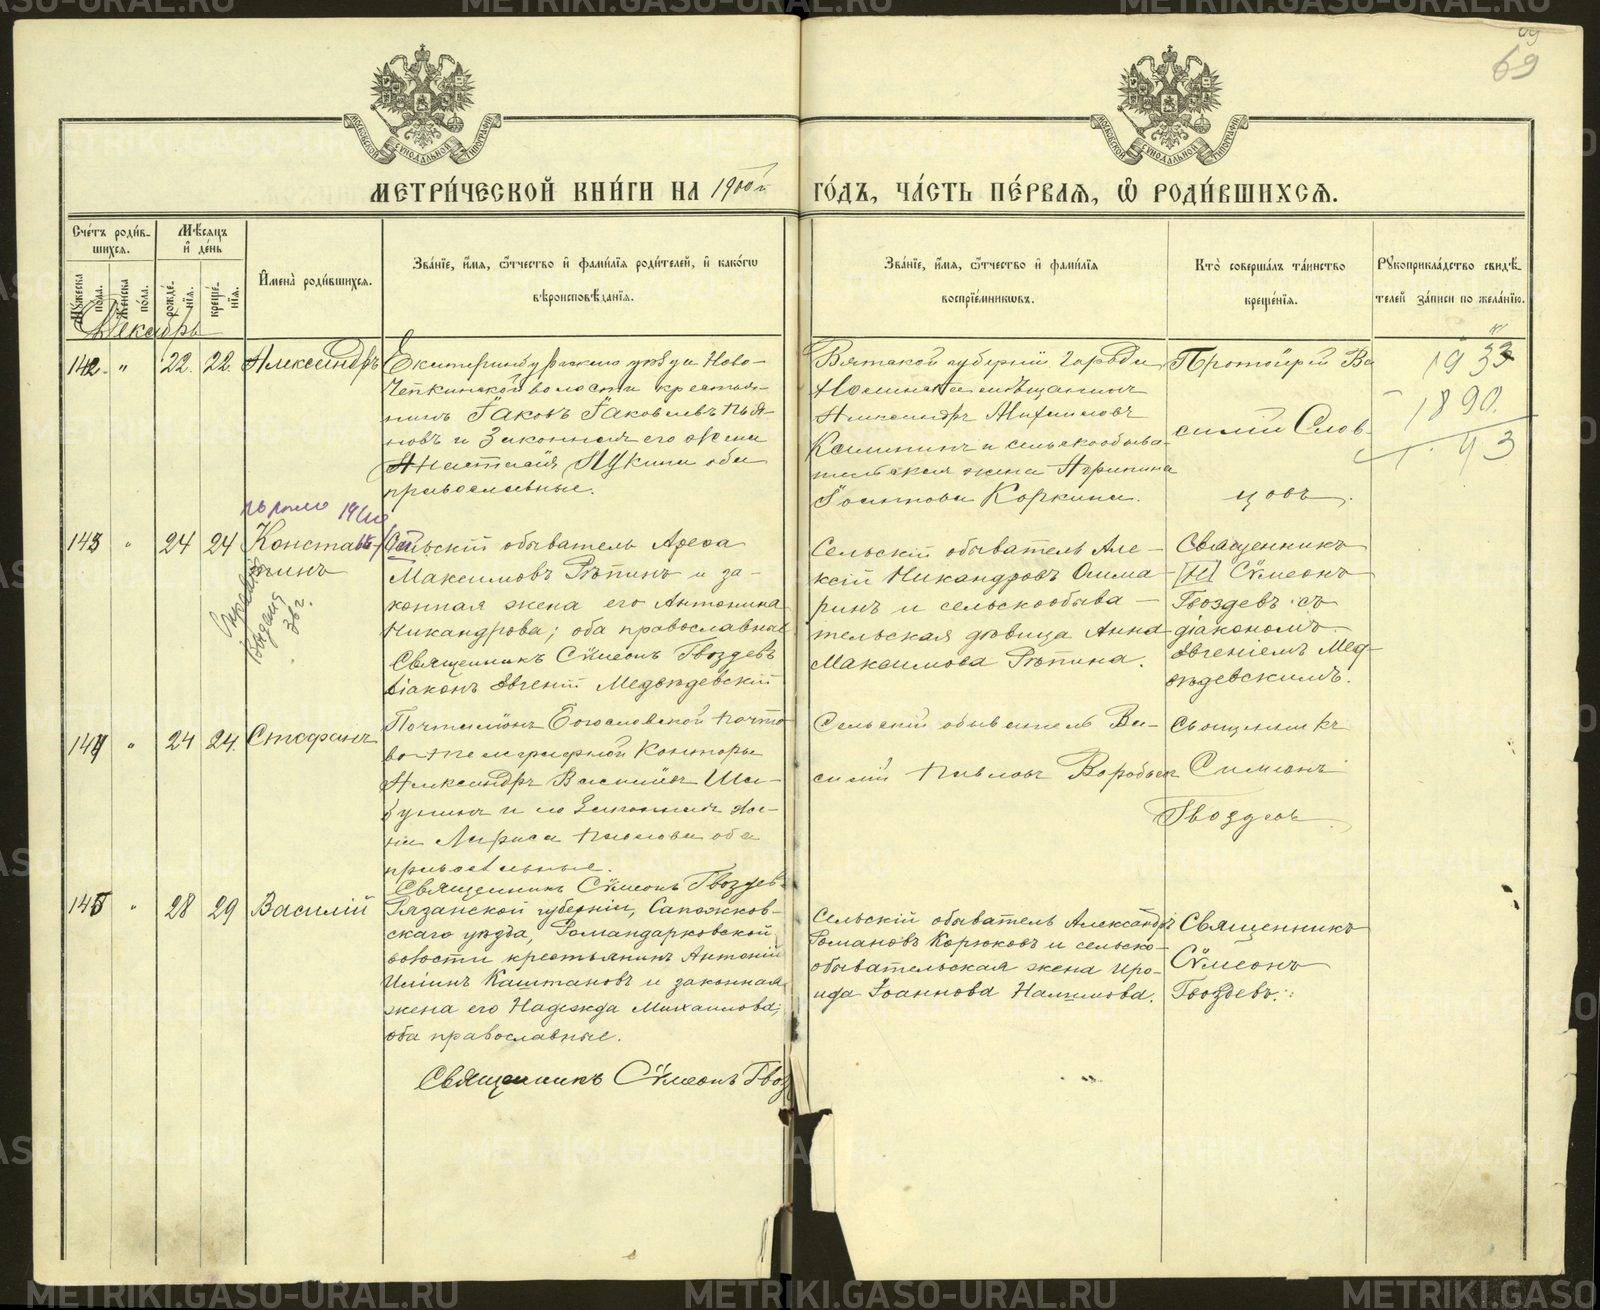 69
МОСКОВСКОЙ СѴНОДАЛЬНОЙ ТИПОГРАФІИ
МОСКОВСКОЙ СѴНОДАЛЬНОЙ ТИПОГРАФІИ
МЕТРИ́ЧЕСКОЙ КНИ́ГИ НА 1900й ГО́ДЪ, ЧА́СТЬ ПЕ́РВАЯ, Ѽ РОДИ́ВШИХСЯ.
Сче́тъ роди́в-
шихся.
Мꙋ́жеска
пола.
Же́нска
по́ла.
Мѣ́сяцъ
и҆ де́нь
рожде́-
нїя.
креще́-
нїя.
И҆мена̀ роди́вшихся.
Зва́нїе, и҆́мя, ѻ҆́тчество и҆ фами́лїя роди́телей, и҆ како́гѡ
вѣроисповѣ́данїя.
Зва́нїе, и҆́мя, ѻ҆́тчество и҆ фами́лїя
воспрїе́мникѡвъ.
Кто̀ соверша́лъ та́инство
креще́нїя.
Рꙋкоприкла́дство свидѣ́-
телей за́писи по жела́нїю.
Декабрь
142. " 22. 22. Александръ
Екатеринбургскаго уѣзда Ново-
Чепкинской волости крестья-
нинъ Іаковъ Іаковлевъ Пья-
новъ и законная его жена
Лукина оба
православные.
Вятской губерніи города
Нолинска мѣщанинъ
Александръ Михаиловъ
Калининъ и сельскообыва-
тельская жена Агрипина
Іоаннова Коркина.
Протоіерей Ва
силій Слов-
цовъ.
1933
- 1890.
43
143 " 24 24 Констан-
тинъ
Справка
выдана
Сельскій обыватель
Максимовъ Рѣпинъ и за-
конная жена его Антонина
Никандрова; оба православные
Священникъ Сѵмеонъ Гвоздевъ
Діаконъ Евгеній Медвѣдевскій
Сельскій обыватель Але-
ксій Никандровъ Ошма-
ринъ и сельскообыва-
тельская дѣвица Анна
Максимова Рѣпина.
Священникъ
[Н] Сѵмеонъ
Гвоздевъ съ
діакономъ
Евгеніемъ Мед-
вѣдевскимъ.
144 " 24 24. Стефанъ
Почталіонъ Богословской почто-
во-телеграфной Конторы
Александръ Василіевъ Ша-
бунинъ и его законная же-
на Лариса Павлова оба
православные.
Священникъ Сѵмеонъ Гвоздевъ
Сельскій обыватель Ва-
силій Павловъ Воробьев
Священникъ
Симеонъ
Гвоздевъ.
145 " 28 29 Василій
Рязанской губерніи, Сапожков-
скаго уѣзда, Романдарковской
волости крестьянинъ Антоній
Иліинъ Каштановъ и законная
жена его Надежда Михаилова;
оба православные.
Священникъ Сѵмеонъ Гвоз
Сельскій обыватель Александръ
Романовъ Корюковъ и сельско-
обывательская жена Иро-
ида Іоаннова Налимова.
Священникъ
Сѵмеонъ
Гвоздевъ.
METRIKI.GASO-URAL.RU